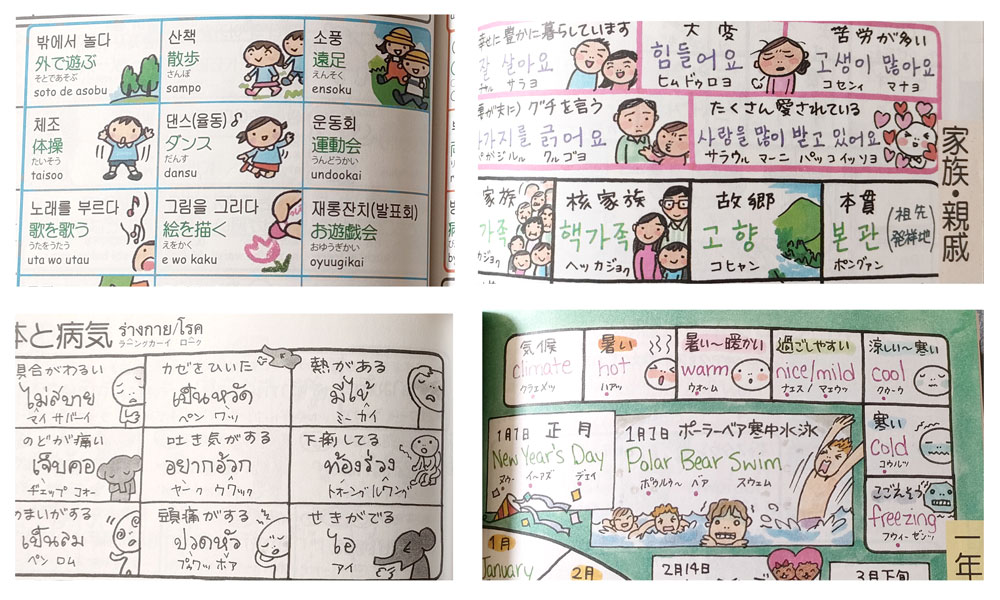 밖에서 놀다
外で遊ぶ
そとであそぶ
soto de asobu
산책
散歩
さんぽ
sampo
소풍
遠足
えんそく
ensoku
체조
体操
たいそう
taisoo
댄스(율동)
ダンス
だんす
dansu
운동회
運動会
うんどうかい
undookai
노래를 부르다
歌を歌う
うたをうたう
uta wo utau
그림을 그리다
絵を描く
えをかく
e wo kaku
재롱잔치(발표회)
お遊戯会
おゆうぎかい
oyuugikai
幸せに豊かに暮らしています
잘 살아요
サラヨ
大変
힘들어요
ヒムドゥロヨ
苦労が多い
고생이 많아요
コセンイ マナヨ
夫に) グチを言う
가지를 긁어요
ガジルル クルゴヨ
たくさん愛されている
사랑을 많이 받고 있어요
サラウル マーニ パッコイッソヨ
家族・親戚
家族
가족
カジョク
核家族
핵가족
ヘッカジョク
故郷
고향
コヒャン
本貫
(祖先発祥地)
본관
ポングァン
体と病気 ร่างกาย/โรค
ラーンクカーイ ローク
具合がわるい
ไม่สบาย
マイ サバーイ
カゼをひいた
เป็นหวัด
ペン ワッ
熱がある
มีไข้
ミー カイ
のどが痛い
เจ็บคอ
ヂェップ コオー
吐き気がする
อยากอ้วก
ヤーク ウワック
下痢してる
ท้องร่วง
トオーング ルワング
めまいがする
เป็นลม
ペン ロム
頭痛がする
ปวดหัว
プゥワッ ホア
せきがでる
ไอ
アイ
気候
climate
クラエメッ
暑い
hot
ハアッ
暑い〜暖かい
warm
ウオーム
過ごしやすい
nice/mild
ナェス / マェウゥ
涼しい〜寒い
cool
クゥーウ
1月1日 正月
New Year's Day
ヌウー イーアズ デェイ
1月1日 ポーラーベア寒中水泳
Polar Bear Swim
ポウルゥー ベア スウェム
寒い
cold
コウルッ
こごえそう
freezing
フゥイーゼンッ
一年
1月
January
2月
2月14日
3月下旬